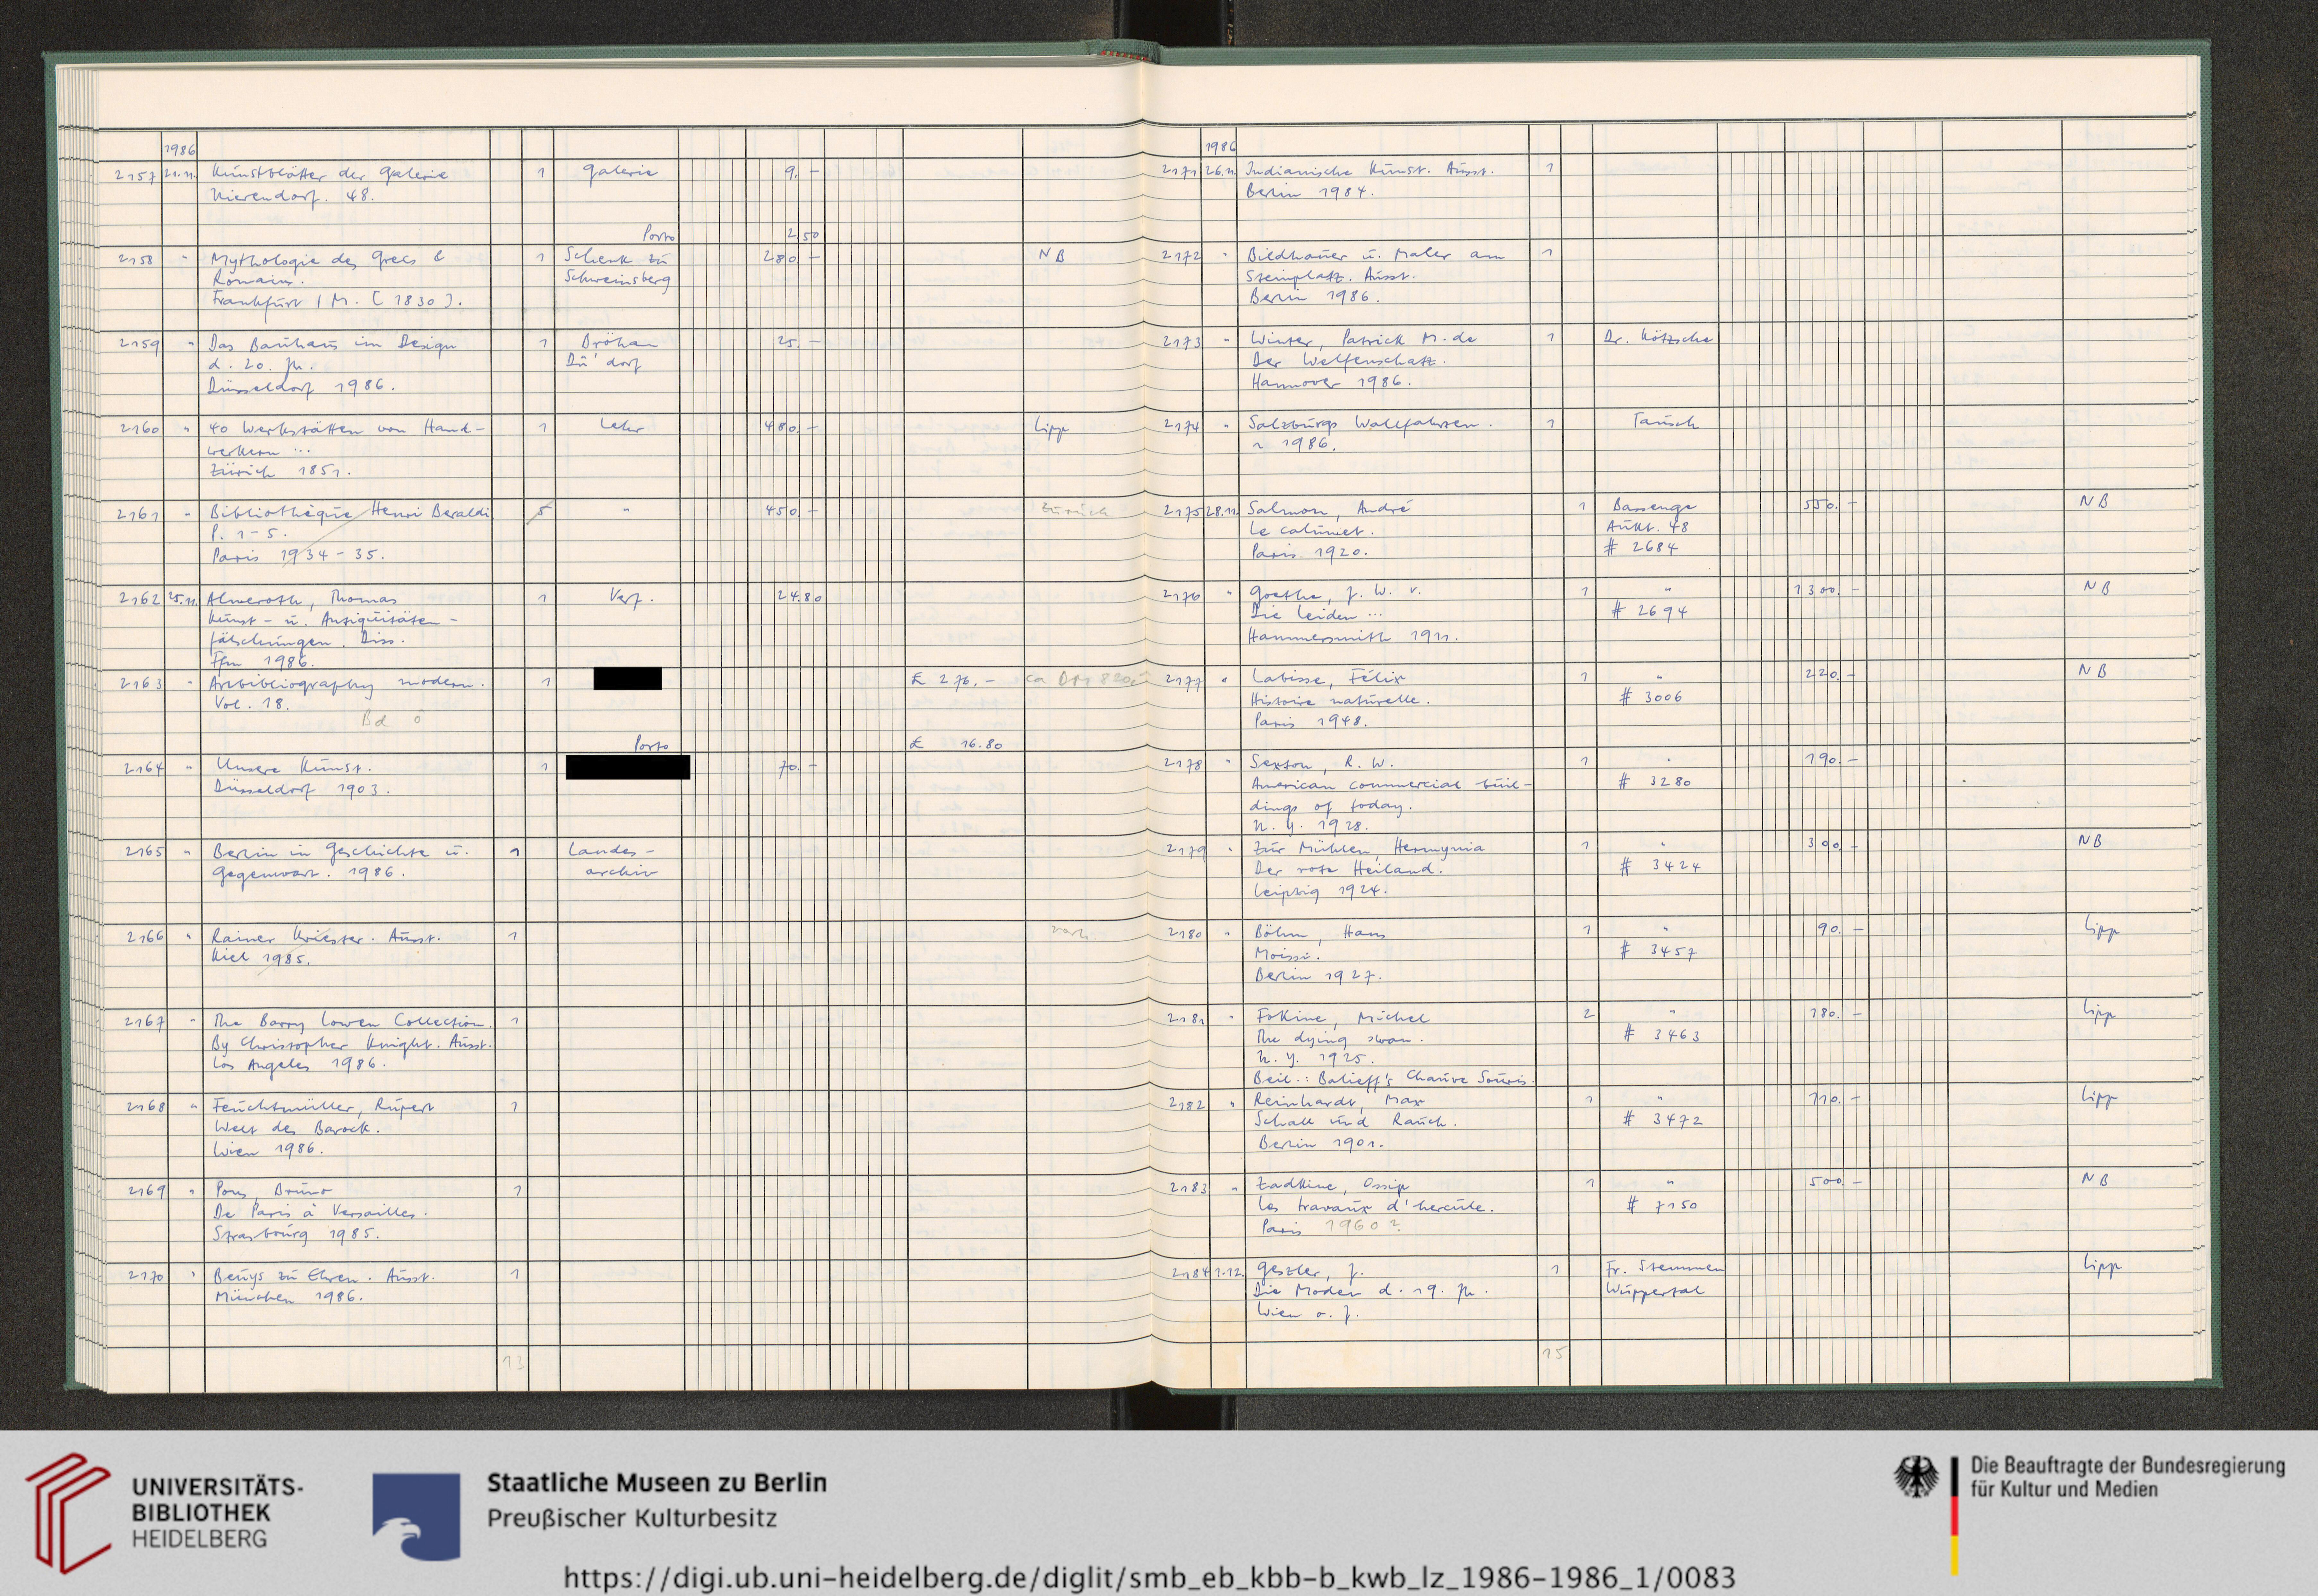 1986
2157 21.11. Kunstblätter der Galerie 1 Galerie 9,-
Nierendorf. 48.
Porto 2,50
2158 " Mythologie des Grecs & 1 Schenk zu 280,- NB
Romains. Schweinsberg
Frankfurt / M. [1830].
2159 " Das Bauhaus im Design 1 Bröhan 25,-
d. 20. Jh. Dü'dorf
Düsseldorf 1986.
2160 " 40 Werkstätten von Hand- 1 Lehr 480,- Lipp
werkern ...
Zürich 1851.
2161 " Bibliothèque Henri Beraldi 5 " 450,- zurück
P. 1-5.
Paris 1934-35.
2162 25.11. Almeroth, Thomas 1 Verf. 24,80
Kunst- u. Antiquitäten-
fälschungen. Diss.
Ffm 1986.
2163 " Artbibliography modern. 1 £ 276.- ca DM 820,-
Vol. 18.
Bd ô
Porto £ 16.80
2164 " Unsere Kunst. 1 70,-
Düsseldorf 1903.
2165 " Berlin in Geschichte u. 1 Landes-
Gegenwart. 1986. archiv
2166 " Rainer Kriester. Ausst. 1
Kiel 1985.
2167 " The Barry Lowen Collection. 1
By Christopher Knight. Ausst.
Los Angeles 1986.
2168 " Feuchtmüller, Rupert 1
Welt des Barock.
Wien 1986.
2169 " Pons, Bruno 1
De Paris à Versailles.
Strasbourg 1985.
2170 " Beuys zu Ehren. Ausst. 1
München 1986.
13
1986
2171 26.11. Indianische Kunst. Ausst. 1
Berlin 1984.
2172 " Bildhauer u. Maler am 1
Steinplatz. Ausst.
Berlin 1986.
2173 " Winter, Patrick M. de 1 Dr. Kötzsche
Der Welfenschatz.
Hannover 1986.
2174 " Salzburgs Wallfahrten. 1 Tausch
~ 1986.
2175 28.11. Salmon, André 1 Bassenge 550,- NB
Le calumet. Aukt. 48
Paris 1920. # 2684
2176 " Goethe, J. W. v. 1 " 1300,- NB
Die Leiden ... # 2694
Hammersmith 1911.
2177 " Labisse, Félix 1 " 220,- NB
Histoire naturelle. # 3006
Paris 1948.
2178 " Sexton, R. W. 1 " 190,-
American commercial buil- # 3280
dings of today.
N. Y. 1928.
2179 " Zur Mühlen, Hermynia 1 " 300,- NB
Der rote Heiland. # 3424
Leipzig 1924.
2180 " Böhm, Hans 1 " 90,- Lipp
Moissi. # 3457
Berlin 1927.
2181 " Fokine, Michel 2 " 180,- Lipp
The dying swan. # 3463
N. Y. 1925.
Beil.: Balieff's Chauve Souris.
2182 " Reinhardt, Max 1 " 110,- Lipp
Schall und Rauch. # 3472
Berlin 1901.
2183 " Zadkine, Ossip 1 " 500,- NB
Les travaux d'hercule. # 7150
Paris 1960?
2184 1.12. Geszler, J. 1 Fr. Stemmen Lipp
Die Moden d. 19. Jh. Wuppertal
Wien o. J.
15
UNIVERSITÄTS-
BIBLIOTHEK
HEIDELBERG
Staatliche Museen zu Berlin
Preußischer Kulturbesitz
Die Beauftragte der Bundesregierung
für Kultur und Medien
https://digi.ub.uni-heidelberg.de/diglit/smb_eb_kbb-b_kwb_lz_1986-1986_1/0083